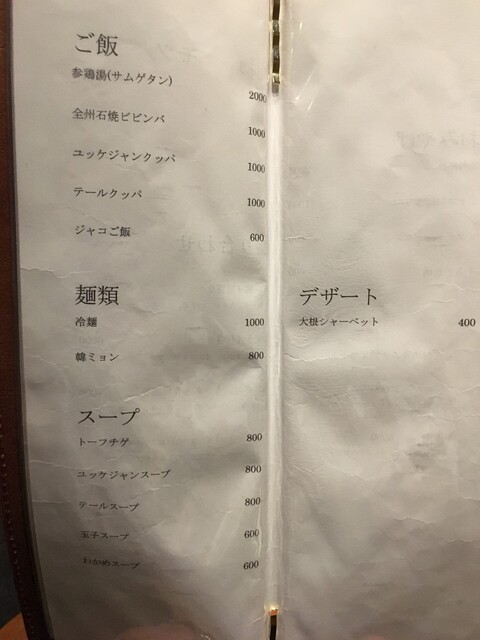 ご飯
参鶏湯(サムゲタン)
2000
全州石焼ビビンバ
1000
ユッケジャンクッパ
1000
テールクッパ
1000
ジャコご飯
600
麺類
冷麺 1000
韓ミョン 800
スープ
トーフチゲ 800
ユッケジャンスープ 800
テールスープ 800
玉子スープ 600
わかめスープ 600
デザート
大根シャーベット 400